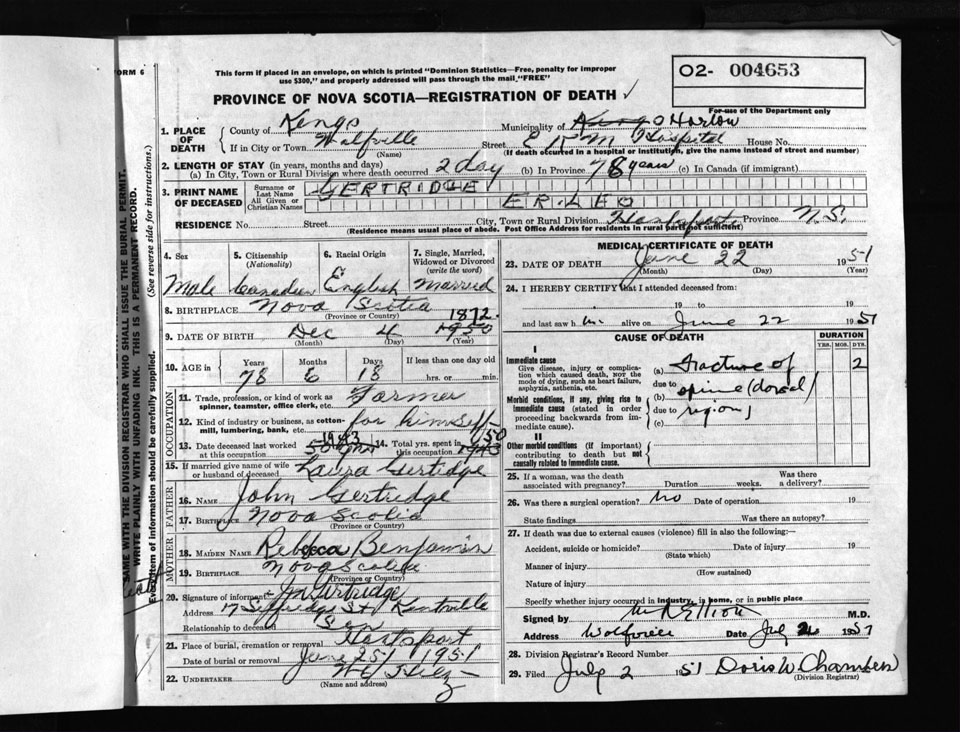 FORM 6
This form if placed in an envelope, on which is printed "Dominion Statistics—Free, penalty for improper
use $300," and properly addressed will pass through the mail, "FREE"
O2- 004653
PROVINCE OF NOVA SCOTIA—REGISTRATION OF DEATH ✓
For use of the Department only
SAME WITH THE DIVISION REGISTRAR WHO SHALL ISSUE THE BURIAL PERMIT.
WRITE PLAINLY WITH UNFADING INK. THIS IS A PERMANENT RECORD.
(See reverse side for instructions.)
Every item of information should be carefully supplied.
1. PLACE OF DEATH
County of Kings Municipality of Horton
If in City or Town Wolfville Street E K M Hospital House No.
(Name) (If death occurred in a hospital or institution, give the name instead of street and number)
2. LENGTH OF STAY (in years, months and days)
(a) In City, Town or Rural Division where death occurred 2 day (b) In Province 78 years (c) In Canada (if immigrant)
3. PRINT NAME OF DECEASED
Surname or Last Name GERTRIDGE
All Given or Christian Names ER-LEO
RESIDENCE No. Street City, Town or Rural Division Hantsport Province N.S.
(Residence means usual place of abode. Post Office Address for residents in rural parts not sufficient)
4. Sex Male
5. Citizenship (Nationality) Canadian
6. Racial Origin English
7. Single, Married, Widowed or Divorced (write the word) Married
8. BIRTHPLACE Nova Scotia
(Province or Country)
9. DATE OF BIRTH Dec 4 1950 1872
(Month) (Day) (Year)
10. AGE in Years 78 Months 6 Days 18 If less than one day old
hrs. or min.
OCCUPATION
11. Trade, profession, or kind of work as spinner, teamster, office clerk, etc. Farmer
12. Kind of industry or business, as cotton-mill, lumbering, bank, etc. for himself
13. Date deceased last worked at this occupation 1943 50 yrs 14. Total yrs. spent in this occupation 50 1943
15. If married give name of wife or husband of deceased Laura Gertridge
FATHER
16. NAME John Gertridge
17. BIRTHPLACE Nova Scotia
(Province or Country)
MOTHER
18. MAIDEN NAME Rebecca Benjamin
19. BIRTHPLACE Nova Scotia
(Province or Country)
20. Signature of informant Gertridge
Address 17 St. Kentville
Relationship to deceased Son
21. Place of burial, cremation or removal Hantsport
Date of burial or removal June 25 1951
22. UNDERTAKER
(Name and address)
MEDICAL CERTIFICATE OF DEATH
23. DATE OF DEATH June 22 1951
(Month) (Day) (Year)
24. I HEREBY CERTIFY that I attended deceased from:
19 to 19
and last saw him alive on June 22 1951
CAUSE OF DEATH DURATION
YRS. MOS. DYS.
I
Immediate cause
Give disease, injury or complication which caused death, NOT the mode of dying, such as heart failure, asphyxia, asthenia, etc.
(a) Fracture of 2
due to
(b) spine (dorsal
due to region)
(c)
Morbid conditions, if any, giving rise to immediate cause (stated in order proceeding backwards from immediate cause).
II
Other morbid conditions (if important) contributing to death but not causally related to immediate cause.
25. If a woman, was the death associated with pregnancy? Duration weeks. Was there a delivery?
26. Was there a surgical operation? no Date of operation 19
State findings Was there an autopsy?
27. If death was due to external causes (violence) fill in also the following:—
Accident, suicide or homicide? Date of injury 19
(State which)
Manner of injury
(How sustained)
Nature of injury
Specify whether injury occurred in industry, in home, or in public place
Signed by Elliott M.D.
Address Wolfville Date July 2 1951
28. Division Registrar's Record Number
29. Filed July 2 1951 Doris W. Chambers
(Division Registrar)